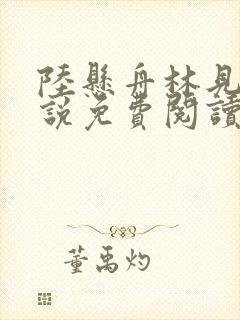 陸懸舟林見
說免費閱讀
董禹灼